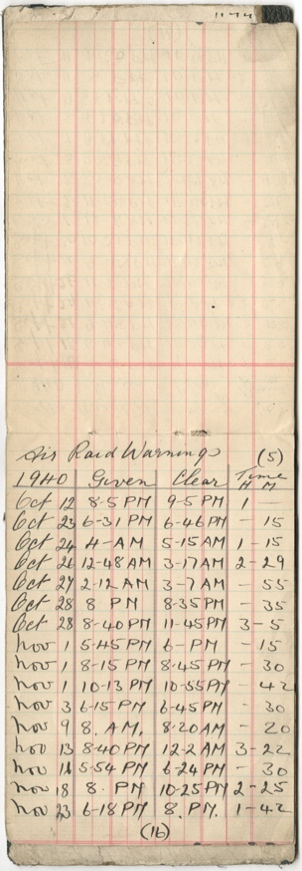 Air Raid Warnings (5)
1940 Given Clear Time
H M
Oct 12 8-5 PM 9-5 PM 1
Oct 23 6-31 PM 6-46 PM - 15
Oct 24 4-AM 5-15 AM 1-15
Oct 26 12-48 AM 3-17 AM 2-29
Oct 27 2-12 AM 3-7 AM - 55
Oct 28 8 PM 8-35 PM - 35
Oct 28 8-40 PM 11-45 PM 3-5
Nov 1 5-45 PM 6-PM - 15
Nov 1 8-15 PM 8-45 PM - 30
Nov 1 10-13 PM 10-55 PM - 42
Nov 3 6-15 PM 6-45 PM - 30
Nov 9 8. AM. 8-20 AM - 20
Nov 13 8-40 PM 12-2 AM 3-22
Nov 5-54 PM 6-24 PM - 30
Nov 18 8. PM 10-25 PM 2-25
Nov 23 6-18 PM 8. PM. 1-42
(16)